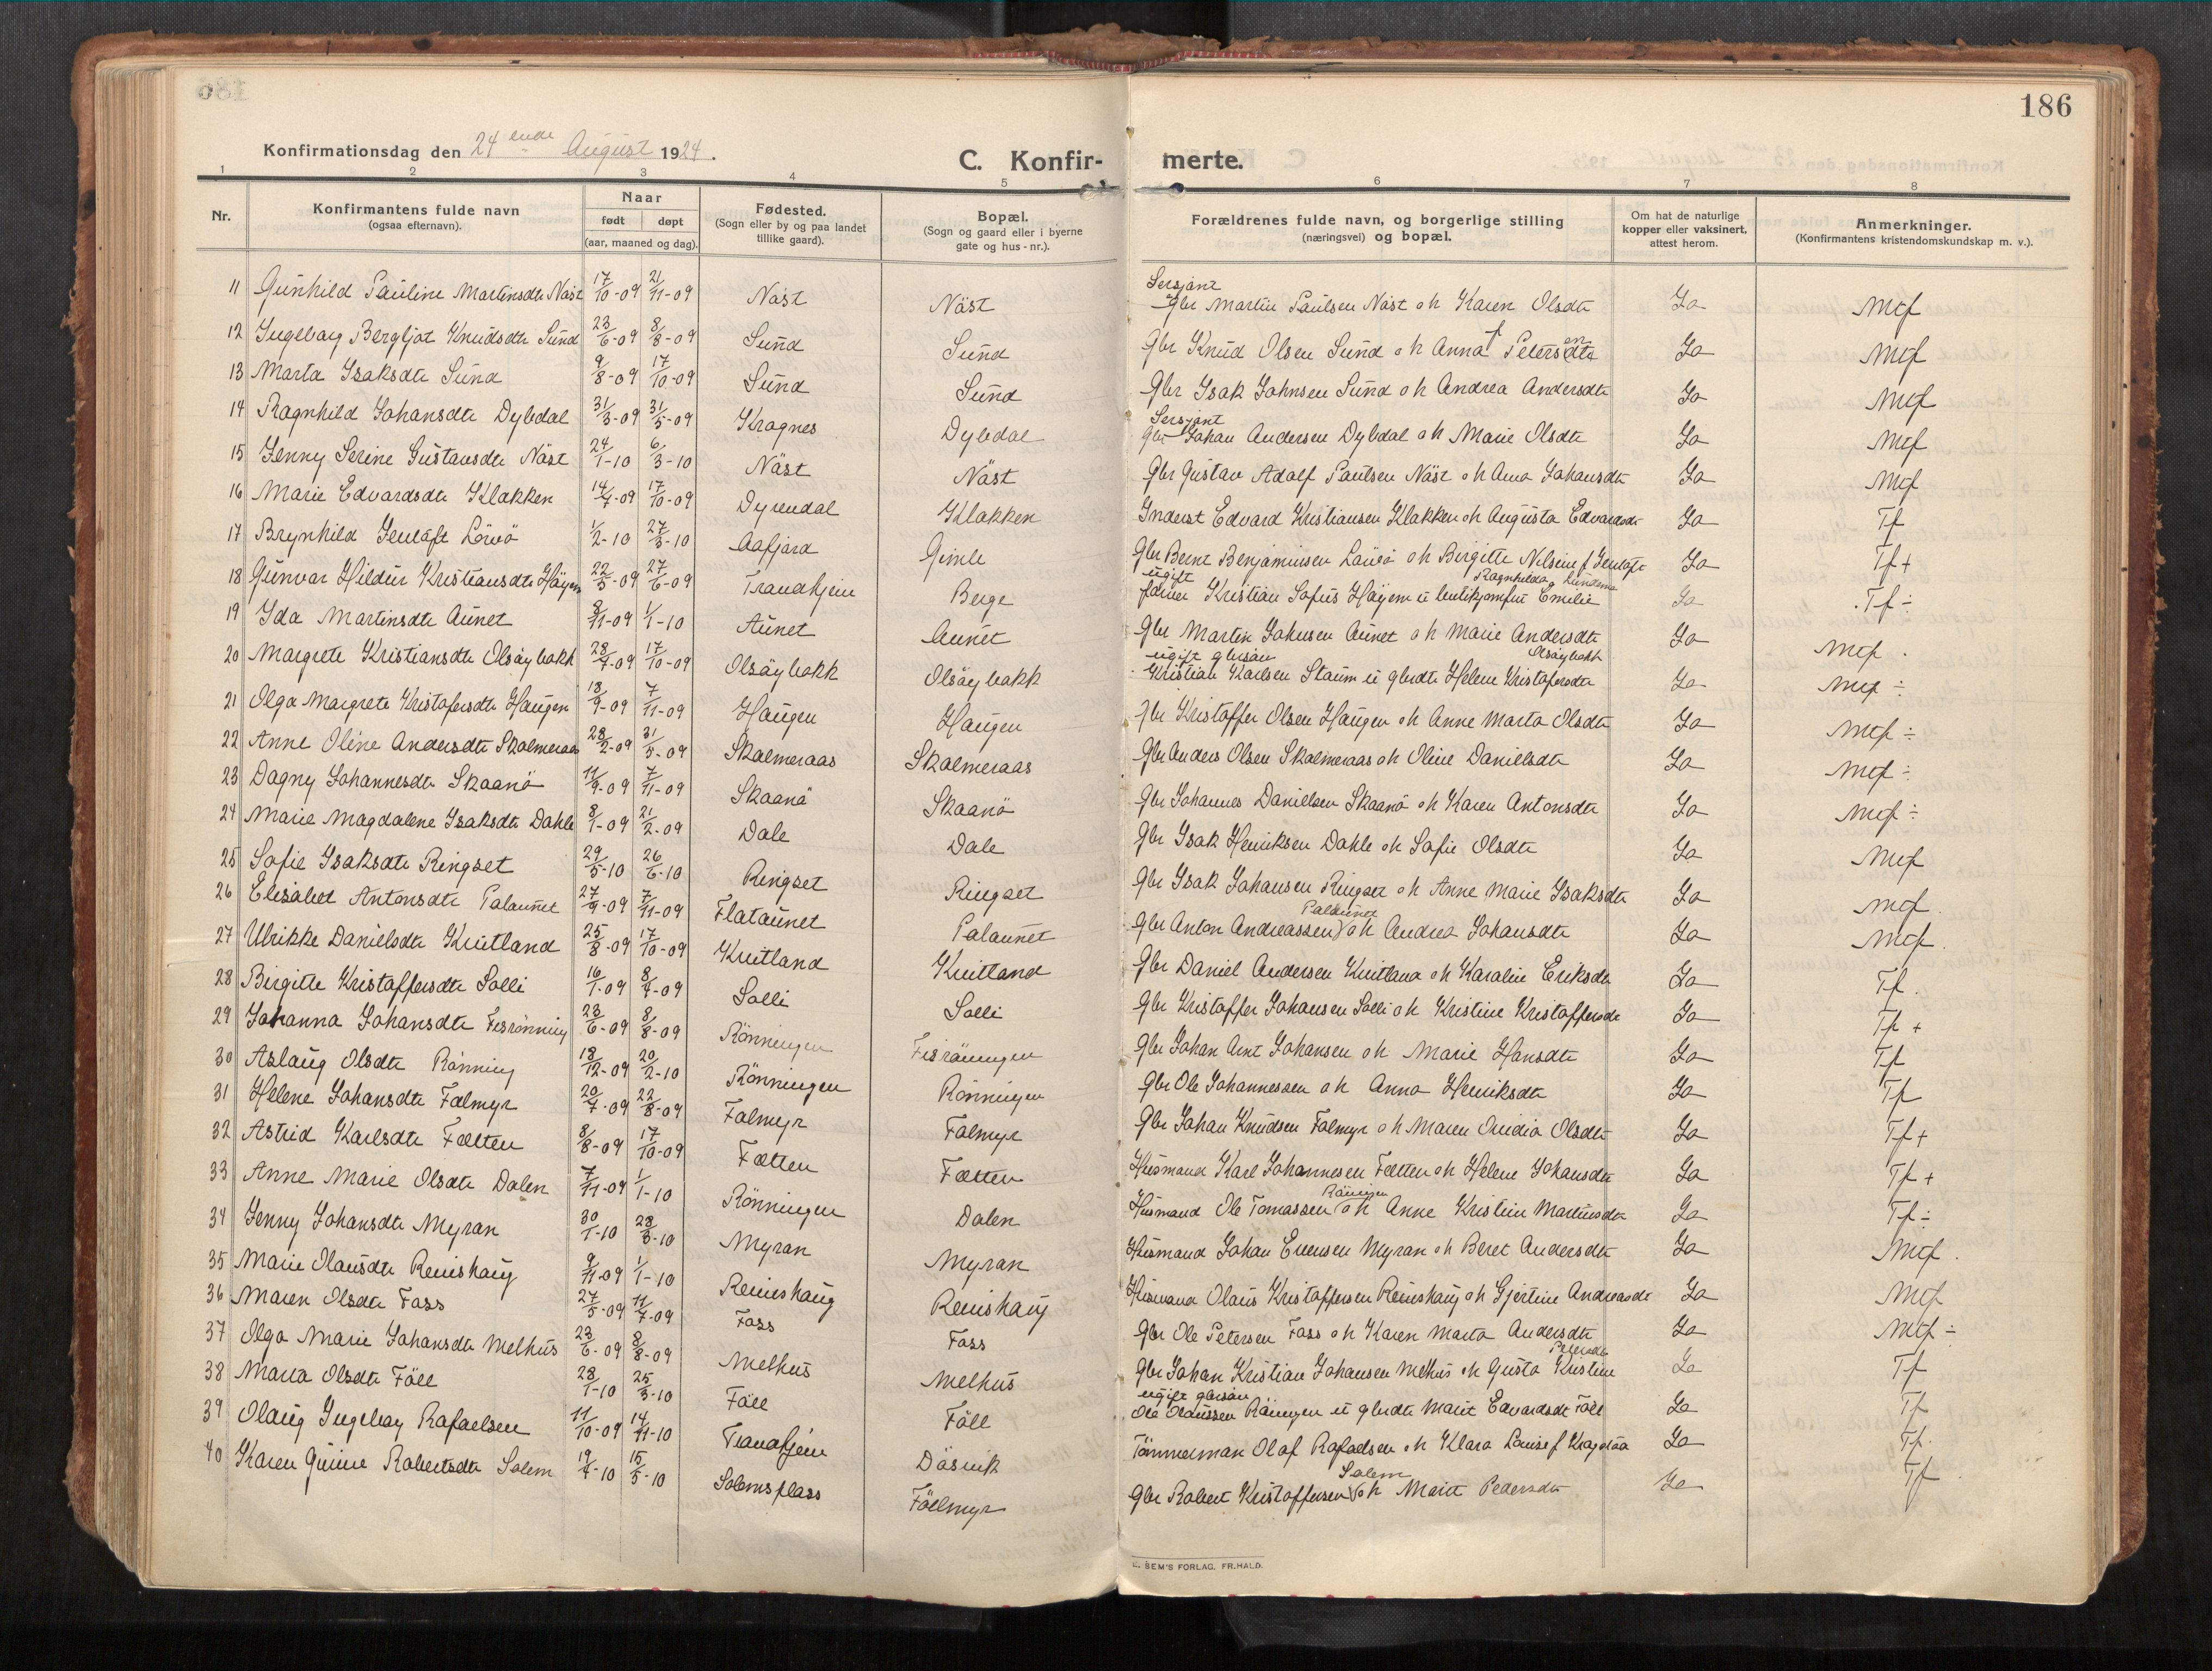 186
Konfirmationsdag den 24 ende August 1924.
C. Konfir- merte.
1 2 3 4 5 6 7 8
Nr. Konfirmantens fulde navn (ogsaa efternavn). Naar født døpt (aar, maaned og dag). Fødested. (Sogn eller by og paa landet tillike gaard). Bopæl. (Sogn og gaard eller i byerne gate og hus-nr.). Forældrenes fulde navn, og borgerlige stilling (næringsvei) og bopæl. Om hat de naturlige kopper eller vaksinert, attest herom. Anmerkninger. (Konfirmantens kristendomskundskap m. v.).
11 Gunhild Pauline Martinsdtr Näst 17/10-09 21/11-09 Näst Näst Sersjant Gbr Martin Paulsen Näst oh Karen Olsdtr Ja Mcf
12 Ingeborg Bergljot Knudsdtr Sund 23/6-09 8/8-09 Sund Sund Gbr Knud Olsen Sund oh Anna f Petersen Ja Mcf
13 Marta Isaksdtr Sund 9/8-09 17/10-09 Sund Sund Gbr Isak Johnsen Sund oh Andrea Andersdtr Ja Mcf
14 Ragnhild Johansdtr Dybdal 31/3-09 31/5-09 Kragnes Dybdal Sersjant Gbr Johan Andersen Dybdal oh Marie Olsdtr Ja Mcf
15 Jenny Serine Gustavsdtr Näst 24/1-10 6/3-10 Näst Näst Gbr Gustav Adolf Paulsen Näst oh Anna Johansdtr Ja Mcf
16 Marie Edvardsdtr Klakken 14/7-09 17/10-09 Dyrendal Klakken Inderst Edvard Kristiansen Klakken oh Augusta Edvardsdtr Ja Tf
17 Brynhild Jentoft Lövö 1/2-10 27/3-10 Aafjord Gimle Gbr Bernt Benjaminsen Lövö oh Birgitte Nilsine f Jentoft Ja Tf+
18 Gunvor Hildur Kristiansdtr Höyem 22/5-09 27/6-09 Trondhjem Berge ugift Kristian Sofus Höyem u butikjomfru Emilie Ragnhilda Ja Tf÷
19 Ida Martinsdtr Aunet 8/11-09 1/1-10 Aunet Aunet Gbr Martin Johnsen Aunet oh Marie Andersdtr Ja Mcf.
20 Margrete Kristiansdtr Olsöybakk 28/7-09 17/10-09 Olsöybakk Olsöybakk ugift gbrsön Kristian Karlsen Staum u gbrdtr Helene Kristofersdtr Olsöybakk Ja Mcf ÷
21 Olga Margrete Kristofersdtr Haugen 18/9-09 7/11-09 Haugen Haugen Gbr Kristoffer Olsen Haugen oh Anne Marta Olsdtr Ja Mcf ÷
22 Anne Oline Andersdtr Skolmeraas 28/2-09 31/5-09 Skolmeraas Skolmeraas Gbr Anders Olsen Skolmeraas oh Oline Danielsdtr Ja Mcf ÷
23 Dagny Johannesdtr Skaanö 11/9-09 7/11-09 Skaanö Skaanö Gbr Johannes Danielsen Skaanö oh Karen Antonsdtr Ja Mcf ÷
24 Marie Magdalene Isaksdtr Dahle 8/1-09 21/2-09 Dale Dale Gbr Isak Henriksen Dahle oh Sofie Olsdtr Ja Mcf
25 Sofie Isaksdtr Ringset 29/5-10 26/6-10 Ringset Ringset Gbr Isak Johansen Ringset oh Anne Marie Isaksdtr Ja Mcf.
26 Elisabet Antonsdtr Palaunet 27/9-09 7/11-09 Flataunet Palaunet Gbr Anton Andreassen Palaunet oh Andrea Johansdtr Ja Mcf.
27 Ulrikke Danielsdtr Kvitland 25/8-09 17/10-09 Kvitland Kvitland Gbr Daniel Andersen Kvitland oh Karoline Eriksdtr Ja Tf.
28 Birgitte Kristoffersdtr Solli 16/1-09 8/4-09 Solli Solli Gbr Kristoffer Johansen Solli oh Kristine Kristoffersdtr Ja Tf +
29 Johanna Johansdtr Fesrönning 23/6-09 8/8-09 Rönningen Fesröningen Gbr Johan Arnt Johansen oh Marie Hansdtr Ja Tf
30 Aslaug Olsdtr Rönning 18/12-09 20/2-10 Rönningen Rönningen Gbr Ole Johannessen oh Anna Henriksdtr Ja Tf
31 Helene Johansdtr Folmyr 20/7-09 22/8-09 Folmyr Folmyr Gbr Johan Knudsen Folmyr oh Maren Ovidia Olsdtr Ja Tf+
32 Astrid Karlsdtr Fætten 8/8-09 17/10-09 Fætten Fætten Husmand Karl Johannesen Fætten oh Helene Johansdtr Ja Tf +
33 Anne Marie Olsdtr Dalen 7/11-09 1/1-10 Rönningen Dalen Husmand Ole Tomassen Röningen oh Anne Kristine Martinsdtr Ja Tf÷
34 Jenny Johansdtr Myran 30/1-10 28/3-10 Myran Myran Husmand Johan Evensen Myran oh Beret Andersdtr Ja Mcf.
35 Marie Olausdtr Reinshaug 9/11-09 1/1-10 Reinshaug Reinshaug Husmand Olaus Kristoffersen Reinshaug oh Gjertine Andreasdtr Ja Mcf
36 Maren Olsdtr Foss 27/5-09 11/7-09 Foss Foss Gbr Ole Petersen Foss oh Karen Marta Andersdtr Ja Mcf ÷
37 Olga Marie Johansdtr Melhus 23/6-09 8/8-09 Melhus Melhus Gbr Johan Kristian Johansen Melhus oh Gusta Kristine Petersdtr Ja Tf
38 Marta Olsdtr Föll 28/1-10 25/3-10 Föll Föll ugift gbrsön Ole Olaussen Röningen u gbrdtr Marit Edvardsdtr Föll Ja Tf
39 Olaug Ingeborg Rafaelsen 11/10-09 14/11-10 Trondhjem Dösvik Tömmerman Olaf Rafaelsen oh Klara Louise f Ja Tf.
40 Karen Gurine Robertsdtr Solem 19/4-10 15/5-10 Solemsplass Föllmyr Gbr Robert Kristoffersen Solem oh Marit Pedersdtr Ja Tf
E. SEM'S FORLAG, FR.HALD.